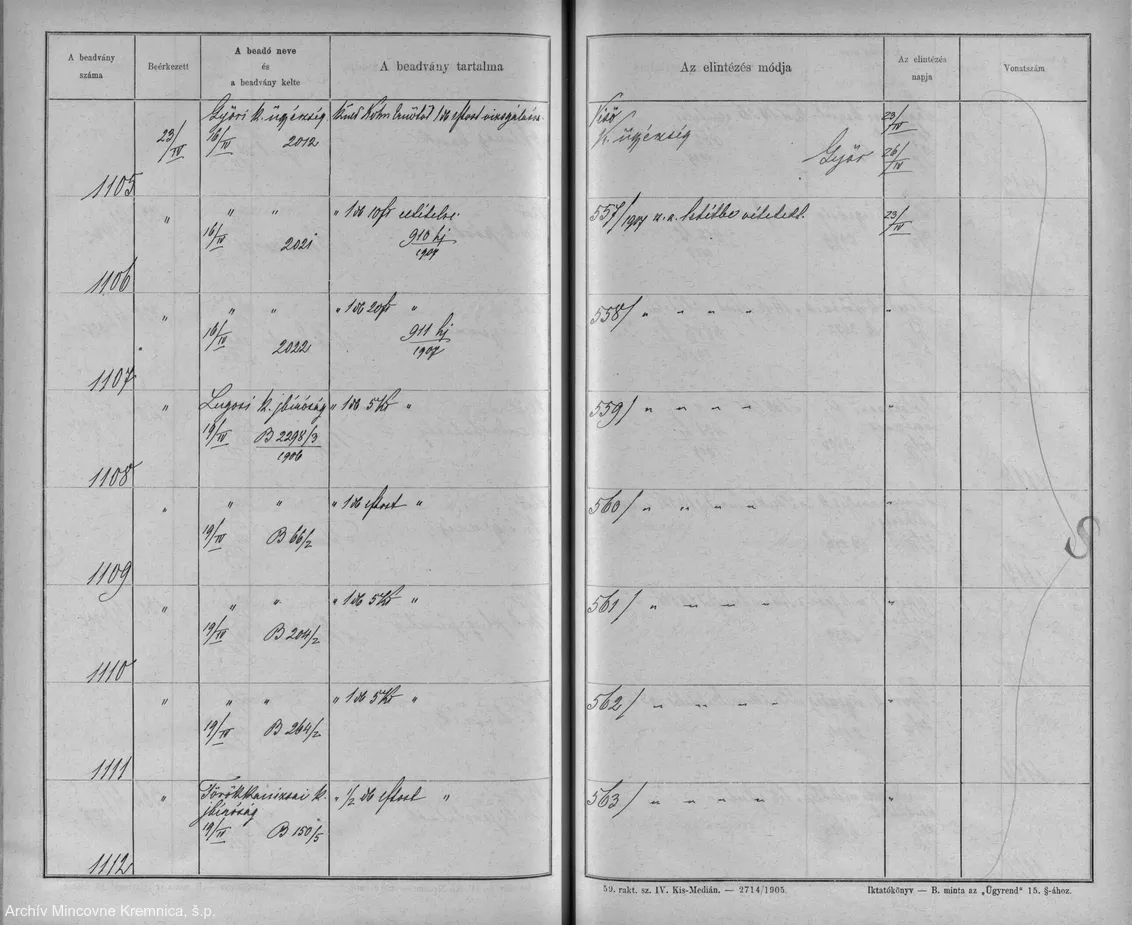 A beadvány száma
Beérkezett
A beadó neve és a beadvány kelte
A beadvány tartalma
Az elintézés módja
Az elintézés napja
Vonatszám
1105
23/IV
Győri k. ügyészség
16/IV 2012
Küld 1 db
K. ügyészség
Győr
23/IV
26/IV
1106
" " "
16/IV 2021
" 1 db 10 f
910 hj/1907
557/1907 letétbe vétetett.
23/IV
1107
" " "
16/IV 2022
" 1 db 20 f "
911 hj/1907
558/ " " " "
1108
" Lugosi k. jbíróság
19/IV B 2298/3 1906
" 1 db 5 Kr "
559/ " " " "
"
1109
" " "
19/IV B 66/2
" 1 db "
560/ " " " "
"
1110
" " "
19/IV B 204/2
" 1 db 5 Kr "
561/ " " " "
"
1111
" " "
19/IV B 264/2
" 1 db 5 Kr "
562/ " " " "
"
1112
" Törökkanizsai k.
jbíróság
19/IV B 150/5
" 1/2 db "
563/ " " " "
"
59. rakt. sz. IV. Kis-Medián. — 2714/1905.
Iktatókönyv — B. minta az „Ügyrend" 15. §-ához.
Archív Mincovne Kremnica, š.p.